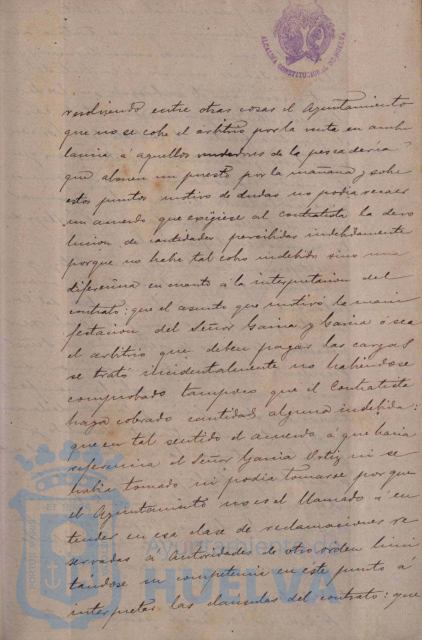 ALCALDIA CONSTITUCIONAL DE HUELVA
resolviendo entre otras cosas el Ayuntamiento
que no se cobre el arbitrio por la venta en ambu
lancia á aquellos vendedores de la pescaderia
que abonen un puesto por la mañana y sobre
estos puntos motivo de dudas no podia recaer
un acuerdo que exigiese al contratista la devo
lucion de cantidades percibidas indebidamente
porque no hubo tal cobro indebido sino una
diferencia en cuanto á la interpretacion del
contrato: que el asunto que motivó la mani
festacion del Señor Garcia y Garcia ó sea
el arbitrio que deben pagar las cargas
se trató incidentalmente no habiendose
comprobado tampoco que el Contratista
haya cobrado cantidad alguna indebida:
que en tal sentido el acuerdo á que hacia
referencia el Señor Garcia Ortiz ni se
habia tomado ni podia tomarse porque
el Ayuntamiento no es el llamado á en
tender en esa clase de reclamaciones re
servadas á Autoridades de otro orden limi
tándose su competencia en este punto á
interpretar las clausulas del contrato: que
Ayuntamiento de
HUELVA